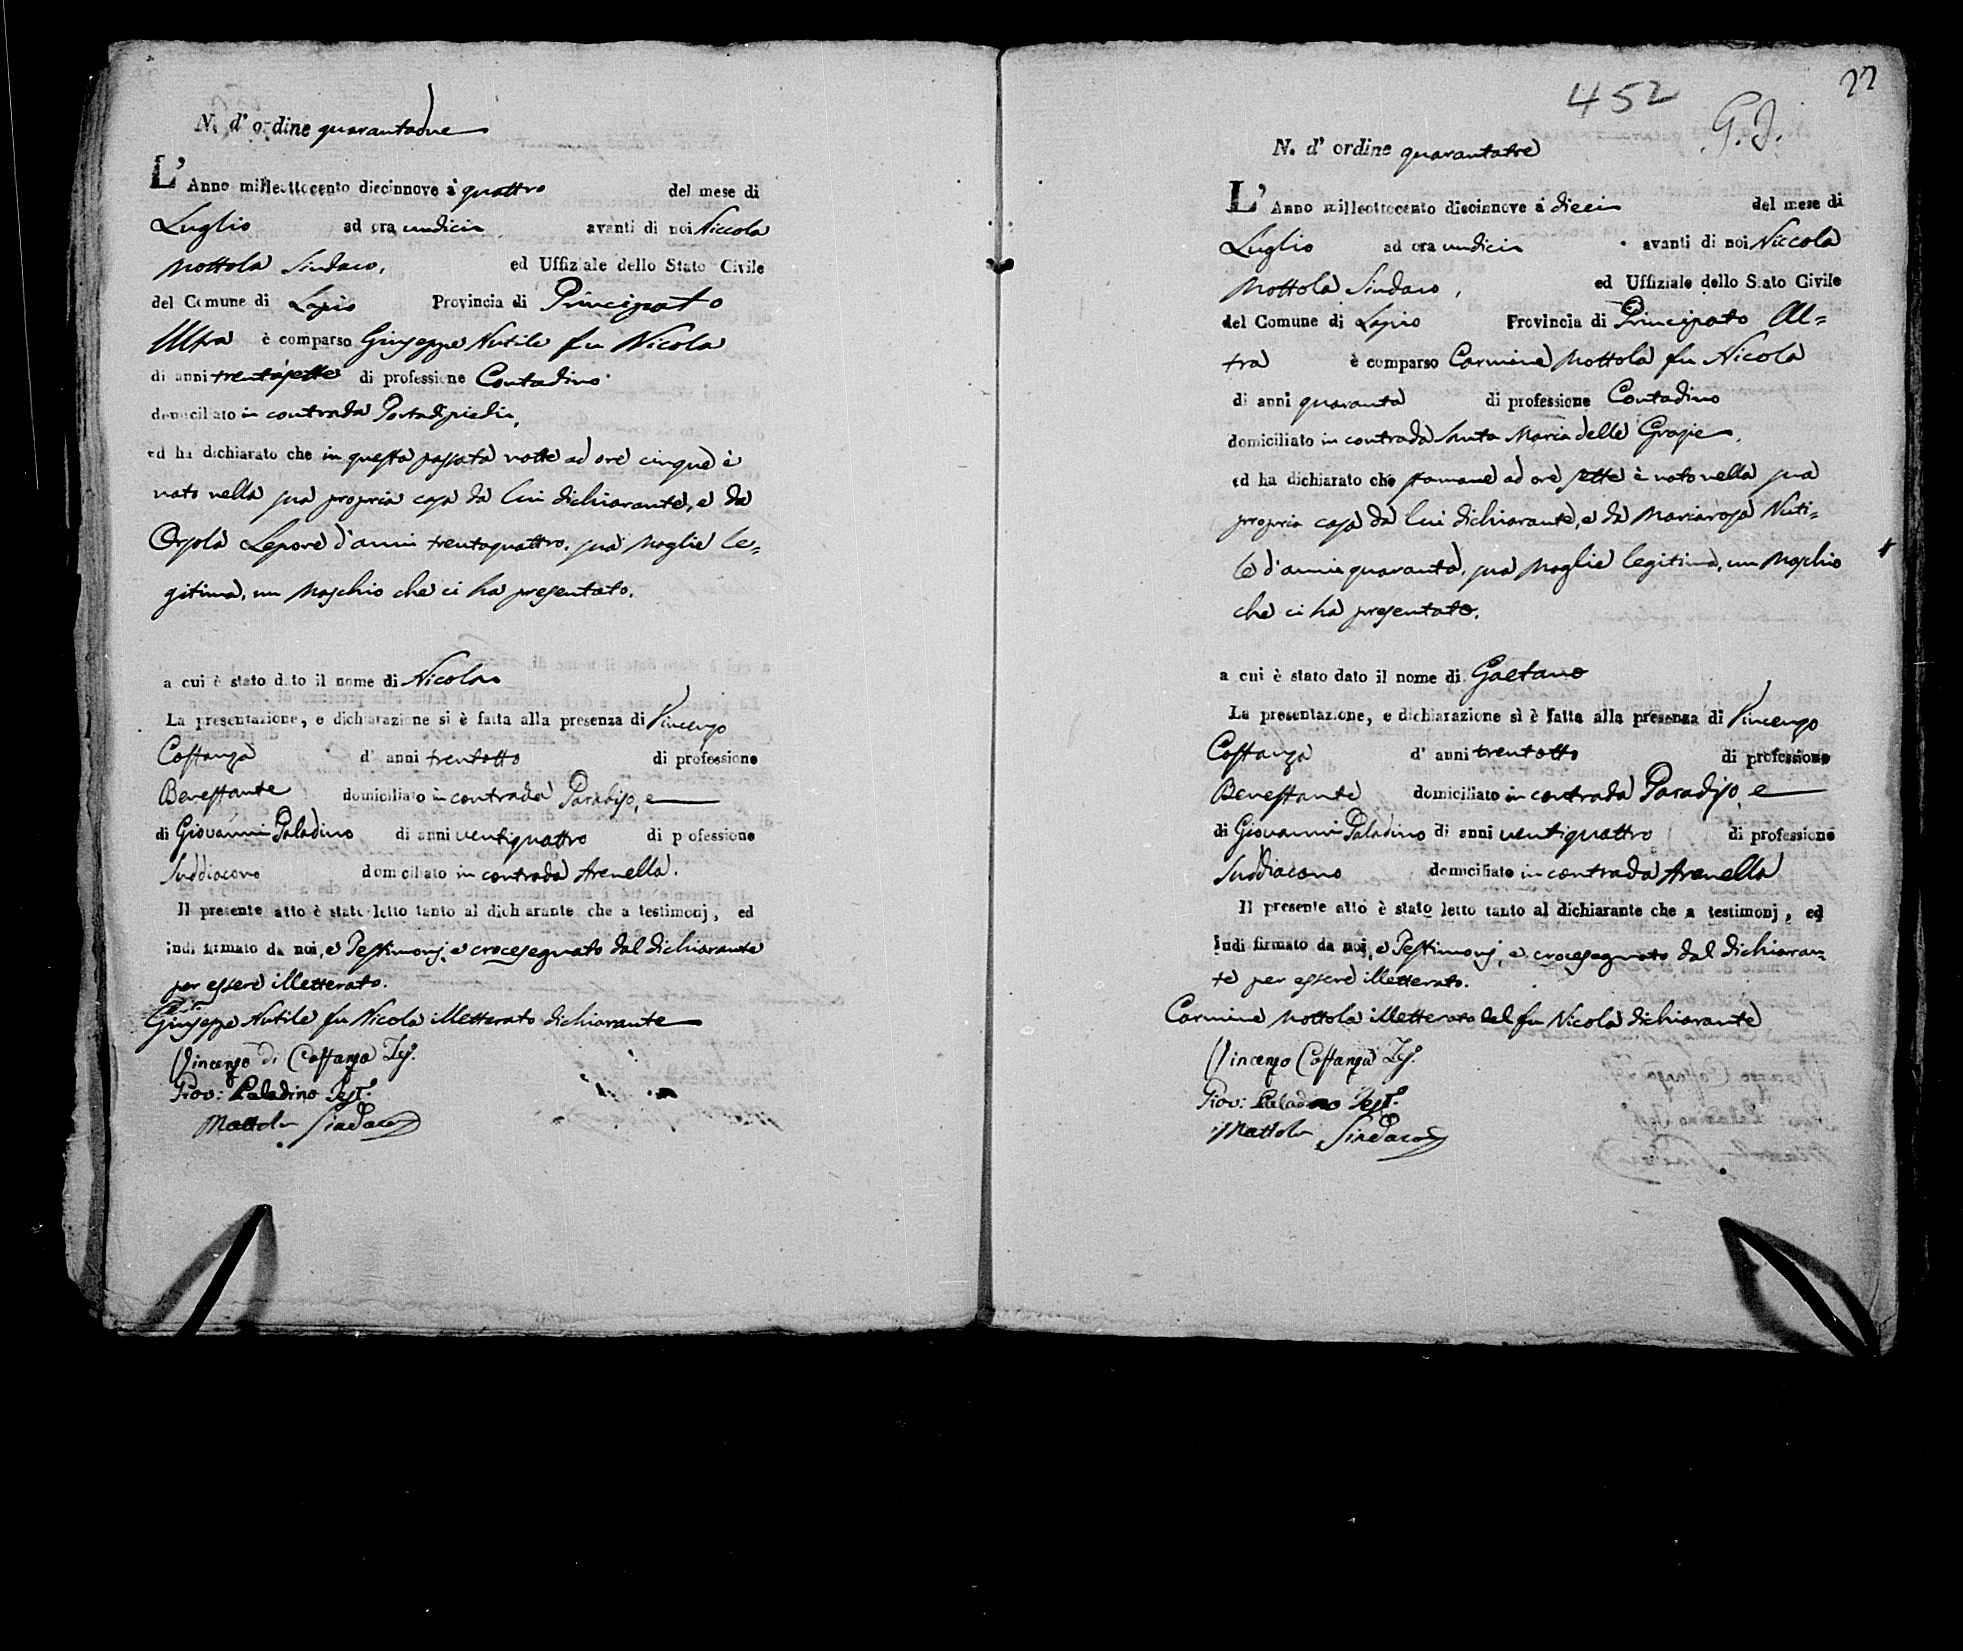 N. d' ordine quarantadue
L' Anno milleottocento diecinnove a' quattro del mese di
Luglio ad ora undici avanti di noi Niccola
Mottola Sindaco, ed Uffiziale dello Stato Civile
del Comune di Lapio Provincia di Principato
Ultra è comparso Giuseppe Nutile fu Nicola
di anni trentasette di professione Contadino
domiciliato in contrada Portadipiedi,
ed ha dichiarato che in questa passata notte ad ore cinque è
nato nella sua propria casa da lui dichiarante, e da
Orsola Lepore d'anni trentaquattro, sua Moglie le=
gitima, un Maschio che ci ha presentato.
a cui è stato dato il nome di Nicola
La presentazione, e dichiarazione si è fatta alla presenza di Vincenzo
Costanza d' anni trentotto di professione
Benestante domiciliato in contrada Paradiso, e
di Giovanni Paladino di anni ventiquattro di professione
Suddiacono domiciliato in contrada Arenella.
Il presente atto è stato letto tanto al dichiarante che a testimonj, ed
indi firmato da noi, e Testimonj, e crocesegnato dal dichiarante
per essere illetterato.
Giuseppe Nutile fu Nicola illetterato dichiarante
Vincenzo di Costanza Tes.
Giov: Paladino Test.
Mottola Sindaco
452
22
G.J.
N. d' ordine quarantatre
L' Anno milleottocento diecinnove a dieci del mese di
Luglio ad ora undici avanti di noi Niccola
Mottola Sindaco, ed Uffiziale dello Stato Civile
del Comune di Lapio Provincia di Principato Ul=
tra è comparso Carmine Mottola fu Nicola
di anni quaranta di professione Contadino
domiciliato in contrada Santa Maria delle Grazie,
ed ha dichiarato che stamane ad ore sette è nato nella sua
propria casa da lui dichiarante, e da Mariarosa Nuti=
le d'anni quaranta, sua Moglie legitima, un Maschio
che ci ha presentato.
a cui è stato dato il nome di Gaetano
La presentazione, e dichiarazione si è fatta alla presenza di Vincenzo
Costanza d' anni trentotto di professione
Benestante domiciliato in contrada Paradiso, e
di Giovanni Paladino di anni ventiquattro di professione
Suddiacono domiciliato in contrada Arenella
Il presente atto è stato letto tanto al dichiarante che a testimonj, ed
indi firmato da noi, e Testimonj, e crocesegnato dal dichiaran=
te per essere illetterato.
Carmine Mottola illetterato del fu Nicola dichiarante
Vincenzo Costanza Tes.
Giov: Paladino Test.
Mottola Sindaco